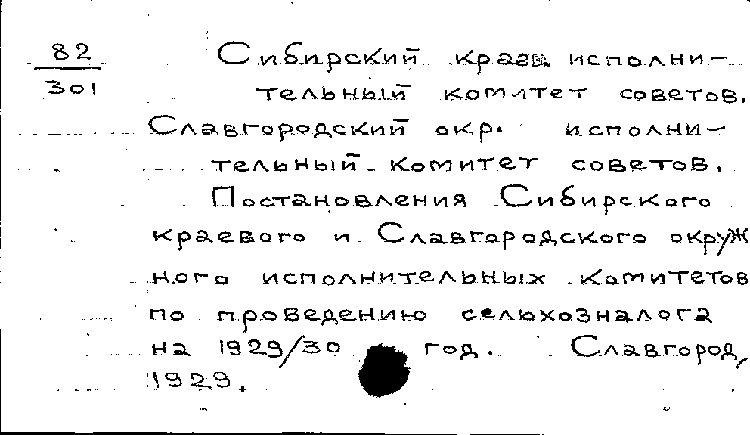 82 Сибирский краев. исполни-
301 тельный комитет советов.
Славгородский окр. исполни-
тельный комитет советов.
Постановления Сибирского
краевого и Славгородского окруж
ного исполнительных комитетов
по проведению сельхозналога
на 1929/30 год. Славгород,
1929.